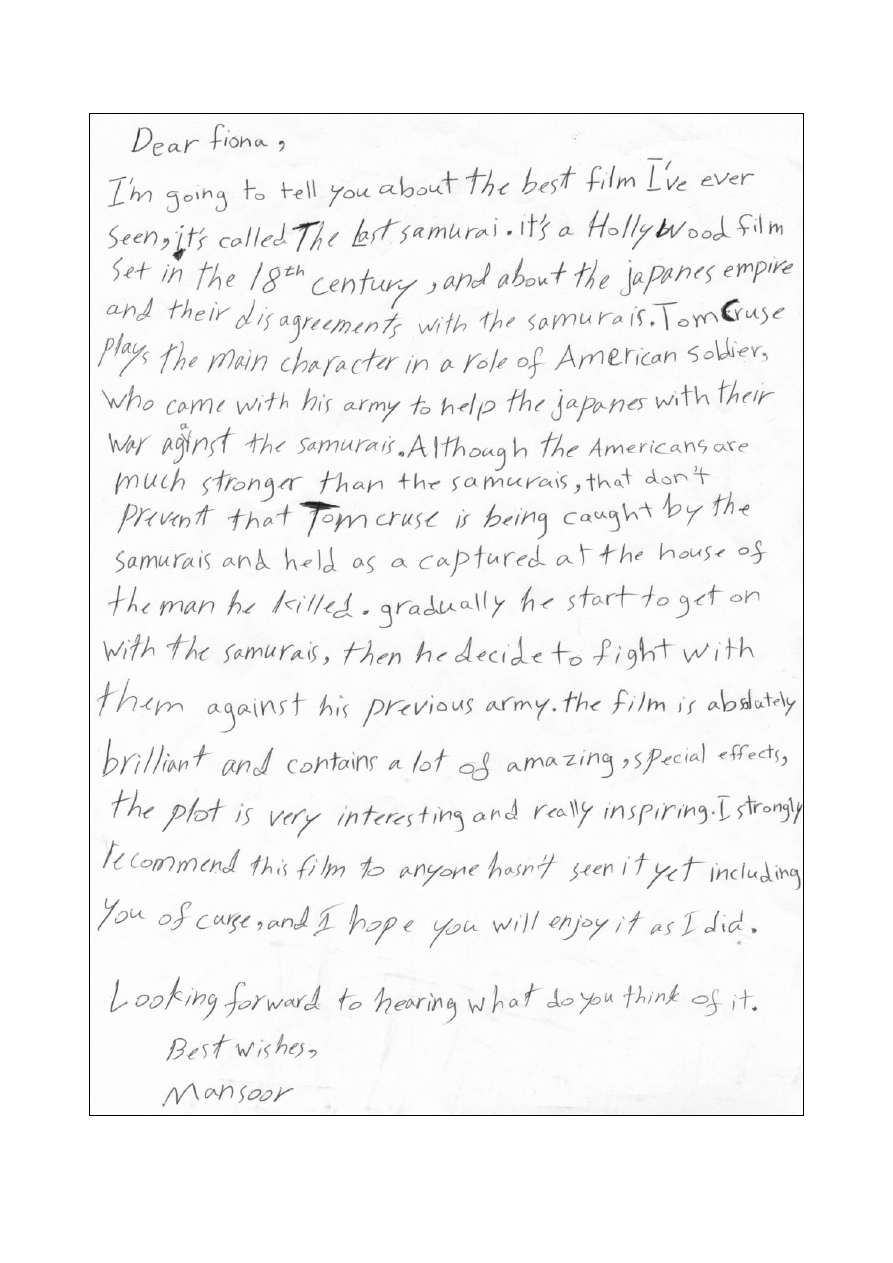 Dear fiona,
I'm going to tell you about the best film I've ever
seen, it's called The Last samurai. it's a Hollywood film
set in the 18th century, and about the japanes empire
and their disagreements with the samurais. Tom Cruse
plays the main character in a role of American soldier,
who came with his army to help the japanes with their
war against the samurais. Although the Americans are
much stronger than the samurais, that don't
prevent that Tom cruse is being caught by the
samurais and held as a captured at the house of
the man he killed. gradually he start to get on
with the samurais, then he decide to fight with
them against his previous army. the film is absolutely
brilliant and contains a lot of amazing, special effects,
the plot is very interesting and really inspiring. I strongly
recommend this film to anyone hasn't seen it yet including
you of curse, and I hope you will enjoy it as I did.
Looking forward to hearing what do you think of it.
Best wishes,
Mansoor